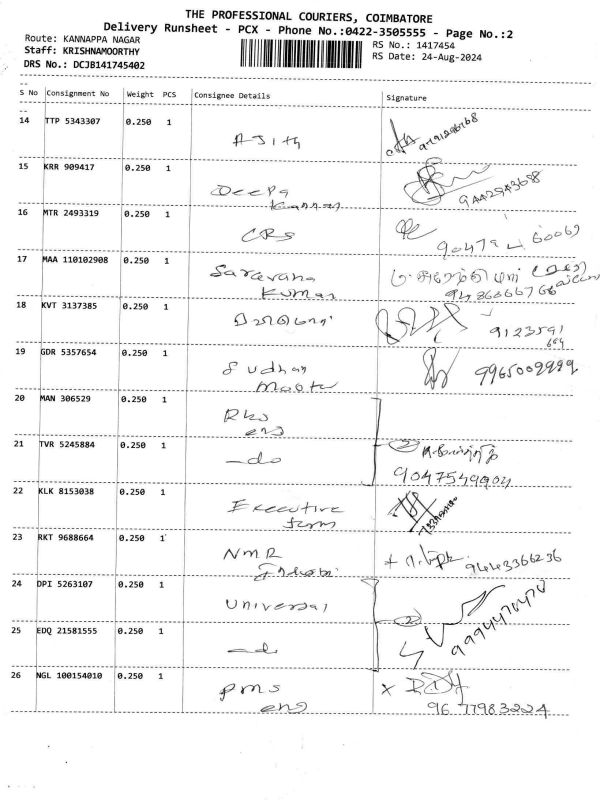 THE PROFESSIONAL COURIERS, COIMBATORE
Delivery Runsheet - PCX - Phone No.:0422-3505555 - Page No.:2
Route: KANNAPPA NAGAR
Staff: KRISHNAMOORTHY
DRS No.: DCJB141745402
RS No.: 1417454
RS Date: 24-Aug-2024
S No Consignment No Weight PCS Consignee Details Signature
14 TTP 5343307 0.250 1
Ajith
15 KRR 909417 0.250 1
Deepa
9442943698
16 MTR 2493319 0.250 1
CRS
17 MAA 110102908 0.250 1
Saravana
Kumar
18 KVT 3137385 0.250 1
9123591
19 GDR 5357654 0.250 1
Sudhan
9965009999
20 MAN 306529 0.250 1
eng
21 TVR 5245884 0.250 1
—do 2
9047549904
22 KLK 8153038 0.250 1
Executive
23 RKT 9688664 0.250 1
NMR
9443366236
24 DPI 5263107 0.250 1
Universal 2
9994470470
25 EDQ 21581555 0.250 1
—do
26 NGL 100154010 0.250 1
PMS x
eng 9677983224